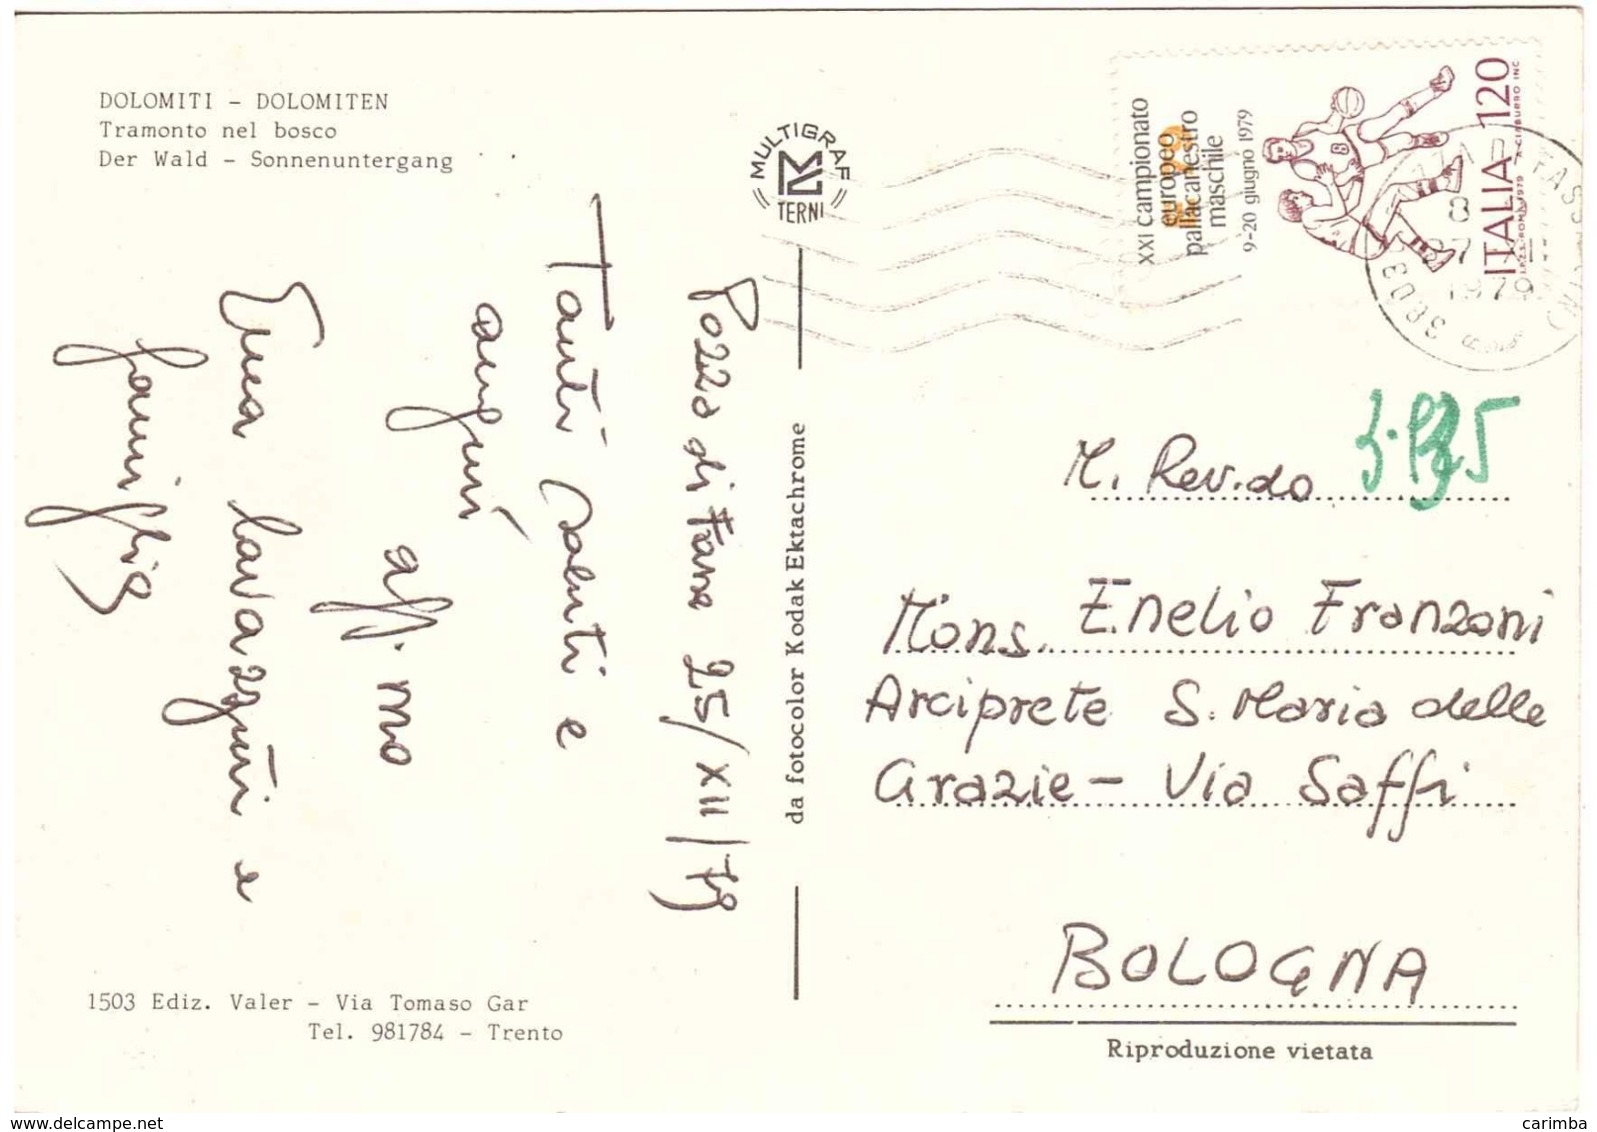 DOLOMITI - DOLOMITEN
Tramonto nel bosco
Der Wald - Sonnenuntergang
MULTIGRAF
TERNI
XXI campionato
europeo
pallacanestro
maschile
9-20 giugno 1979
ITALIA 120
I.P.Z.S. ROMA 1979
8
1979
Pozza di Fassa 25/XII/79
Tanti Saluti e
auguri
aff.mo
Enea Lavazzini e
famiglia
da fotocolor Kodak Ektachrome
M. Rev.do
Mons. Enelio Franzoni
Arciprete S. Maria delle
Grazie - Via Saffi
BOLOGNA
1503 Ediz. Valer - Via Tomaso Gar
Tel. 981784 - Trento
Riproduzione vietata
www.delcampe.net
carimba